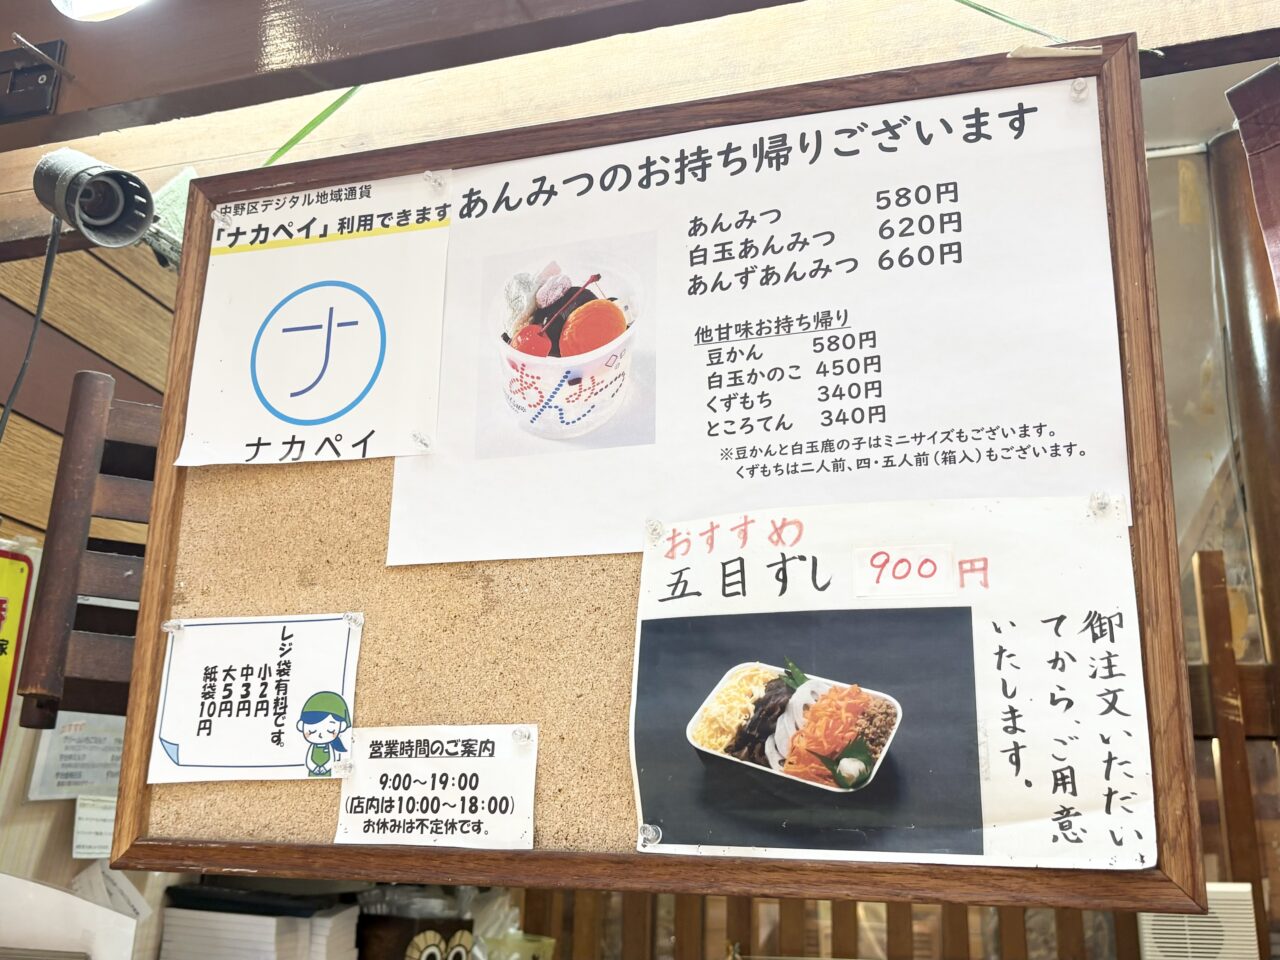 中野区デジタル地域通貨
「ナカペイ」利用できます
ナ
ナカペイ
あんみつのお持ち帰りございます
あんみつ 580円
白玉あんみつ 620円
あんずあんみつ 660円
他甘味お持ち帰り
豆かん 580円
白玉かのこ 450円
くずもち 340円
ところてん 340円
※豆かんと白玉鹿の子はミニサイズもございます。
くずもちは二人前、四・五人前（箱入）もございます。
あんみつ
おすすめ
五目ずし 900円
御注文いただい
てから、ご用意
いたします。
レジ袋有料です。
小2円
中3円
大5円
紙袋10円
営業時間のご案内
9:00～19:00
（店内は10:00～18:00）
お休みは不定休です。